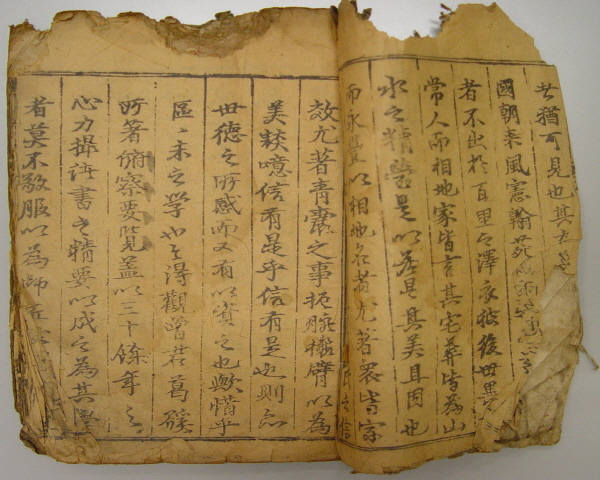 者猶可見也其古
國朝來風憲翰苑
者不出於百里之澤衣被後世
常人而相地家皆言其宅葬皆為山
水之精營是以若是其美且固也
而永豐以相地名者尤著眾皆宗
效尤著青囊之事扼腕攘臂以為
美談噫信有是乎信有是也則亦
世德之所感而又有以資之也歟惜乎
區、未之學也予得觀曾君葛溪
所著俯察要覽蓋以三十餘年之
心力撮諸書之精要以成之為其學
者莫不敬服以為師